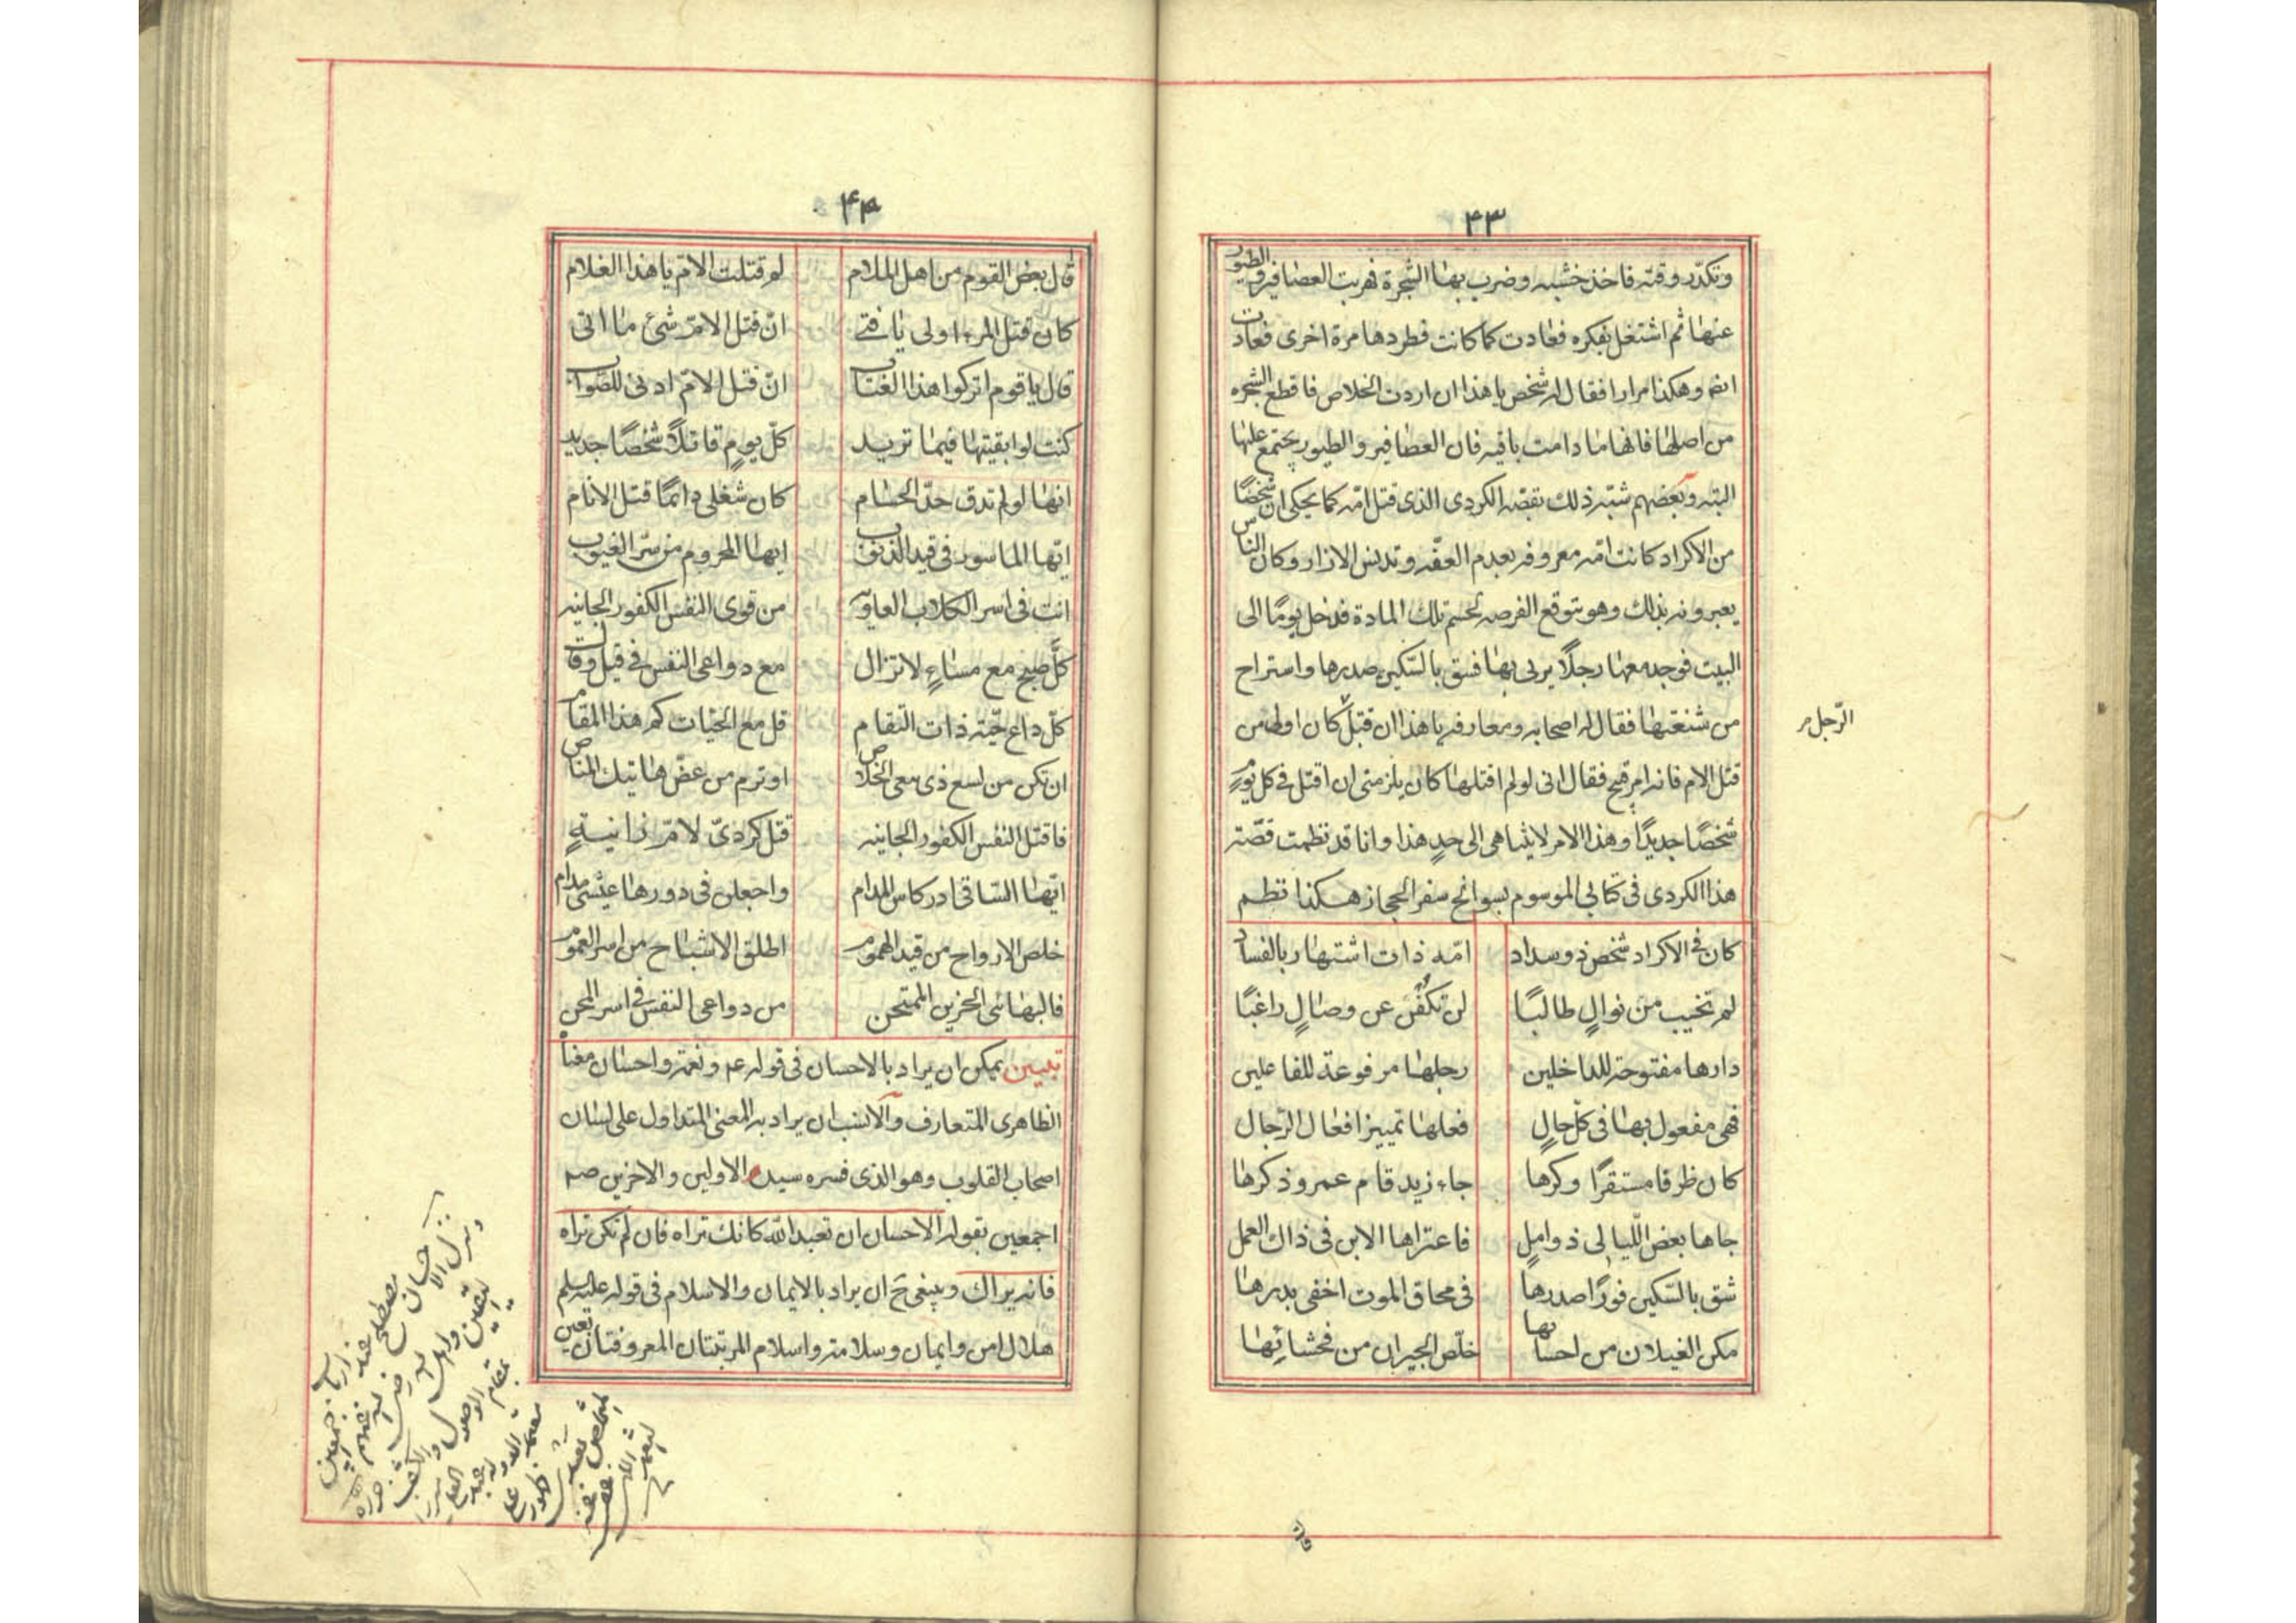 ۴۳
وتكدّر وقته فاخذ خشبه وضرب بها الشجرة فهربت العصافير والطيور
عنها ثم اشتغل بفكره فعادت كما كانت فطردها مرة اخرى فعادت
ايضا وهكذا مرارا فقال له شخص يا هذا ان اردت الخلاص فاقطع الشجره
من اصلها فانها ما دامت باقيه فان العصافير والطيور يجتمع عليها
البته وبعضهم شبّه ذلك بقصّه الكردى الذى قتل امّه كما يحكى ان شخصًا
من الاكراد كانت امّه معروفه بعدم العفّه وتدنس الازار وكان الناس
يعيرونه بذلك وهو يتوقع الفرصه لحسم تلك المادة فدخل يومًا الى
البيت فوجد معها رجلًا يزنى بها فشق بالسّكين صدرها واستراح
من شنعتها فقال له اصحابه ومعارفه يا هذا ان قتل كان اولى من
الرّجل
قتل الام فانه امر قبيح فقال انى لو لم اقتلها كان يلزمنى ان اقتل فى كل يومٍ
شخصًا جديدًا وهذا الامر لا يتناهى الى حدٍ هذا وانا قد نظمت قصّته
هذا الكردى فى كتابى الموسوم بسوانح سفر الحجاز هكذا نظم
كان فى الاكراد شخص ذو سداد امّه ذات اشتهار بالفساد
لم تخيب من نوالٍ طالبًا لن تكفّن عن وصالٍ راغبًا
دارها مفتوحة للداخلين رجلها مرفوعة للفاعلين
فهى مفعول بها فى كلّ حالٍ فعلها تمييز افعال الرّجال
كان ظرفا مستقرًا وكرها جاء زيد قام عمرو ذكرها
جاها بعض اللّيالى ذو املٍ فاعتراها الابن فى ذاك العمل
شق بالسّكين فورًا صدرها فى محاق الموت اخفى بدرها
مكن الغيلان من احسائها خلّص الجيران من فحشائها
۴۴
قال بعض القوم من اهل الملام لم قتلت الامّ يا هذا الغلام
كان قتل المرء اولى يا فتى انّ قتل الامّ شئ ما اتى
قال يا قوم اتركوا هذا العتاب انّ قتل الامّ ادنى للصّواب
كنت لو ابقيتها فيما تريد كلّ يومٍ قاتلًا شخصًا جديد
انها لو لم تذق حدّ الحسام كان شغلى دائمًا قتل الانام
ايّها الماسور فى قيد الذنوب ايها المحروم من سرّ الغيوب
انت فى اسر الكلاب العاويه من قوى النفس الكفور الجانيه
كلّ صبح مع مساءٍ لا تزال مع دواعى النفس فى قيل وقال
كلّ داع حيّة ذات التقام قل مع الحيّات كم هذا المقام
ان تكن من لسع ذى تبغى الخلاص او ترم من عضّ هاتيك المناص
فاقتل النفس الكفور الجانيه قتل كردىّ لامّ زانيةٍ
ايّها السّاقى ادر كاس المدام واجعلن فى دورها عيشى مدام
خلص الارواح من قيد الهموم اطلق الاشباح من اسر الغموم
فالبهائى الحزين الممتحن من دواعى النفس فى اسر المحن
تبيين يمكن ان يراد بالاحسان فى قوله عم ونعمة واحسان معناه
الظاهرى المتعارف والانسب ان يراد به المعنى المتداول على لسان
اصحاب القلوب وهو الذى فسره سيد الاولين والاخرين صم
اجمعين بقوله الاحسان ان تعبد الله كانك تراه فان لم تكن تراه
فانه يراك وينبغى ح ان يراد بالايمان والاسلام فى قوله عليه السلم
هلال امن وايمان وسلامة واسلام المرتبتان المعروفتان